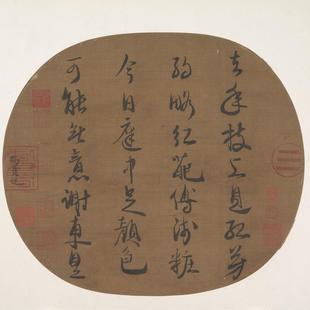 去年枝上見孤芳
約略紅葩傅淺粧
今日庭中足顏色
可能無意謝東皇